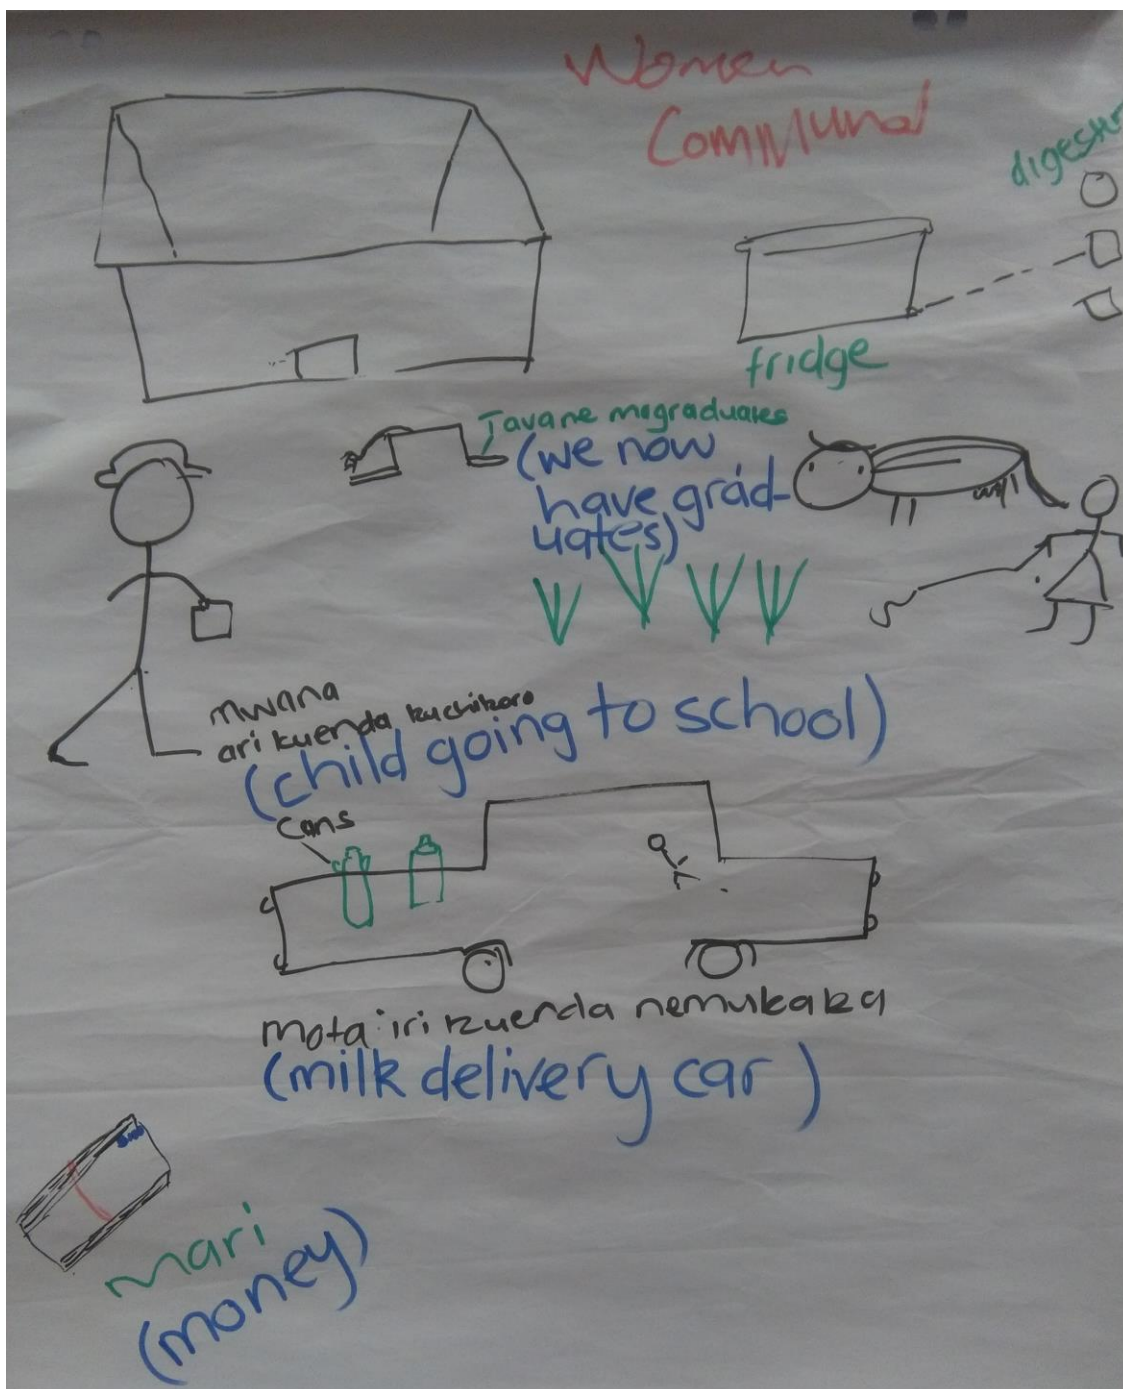 Women
Communal
digester
fridge
Tavane magraduates
(we now
have grad-
uates)
mwana
ari kuenda kuchikoro
(child going to school)
Cans
mota iri kuenda nemukaka
(milk delivery car)
mari
(money)